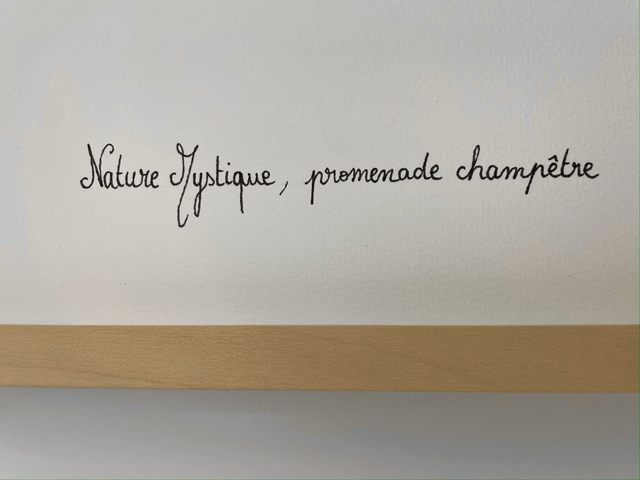 Nature Mystique, promenade champêtre